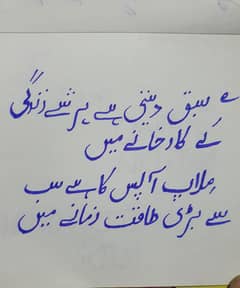 یہ سبق دیتی ہے ہر شے زندگی
کے کارخانے میں
ملاپ آپس کا ہے سب
سے بڑی طاقت زمانے میں